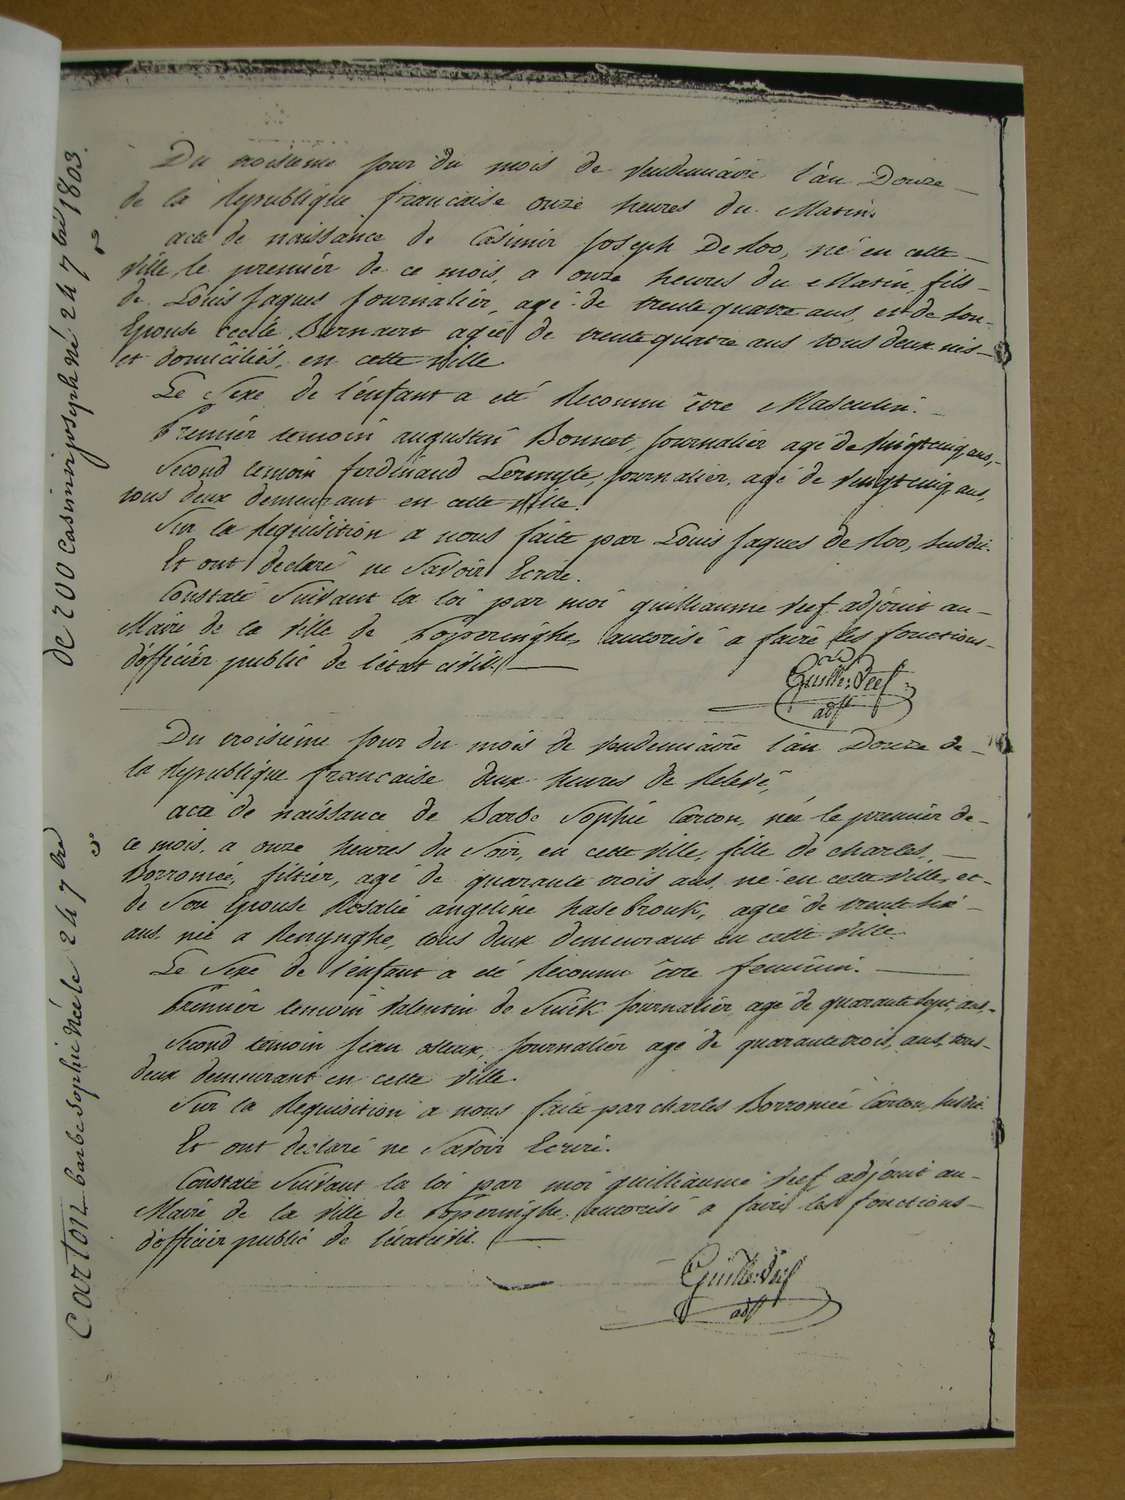 Du troisieme jour du mois de vendemiaire l'an Douze
de la Republique francaise onze heures du Matin.
acte de naissance de Casimir Joseph De Roo, né en cette
ville, le premier de ce mois, a onze heures du Matin, fils
de Louis Jaques Journalier, agé de trente quatre ans, et de son
Epouse Cecile Bernaert agée de trente quatre ans tous deux nés
et domiciliés, en cette ville
Le Sexe de l'enfant a eté Reconnu être Masculin.
Premier temoin augustin Bonnet, Journalier agé de vingt cinq ans,
Second temoin ferdinand Lermyte, Journalier, agé de vingt cinq ans,
tous deux demeurant en cette ville.
Sur la Requisition a nous faite par Louis Jaques de Roo, susdit.
Et ont declaré ne Savoir Ecrire.
Constaté Suivant la loi par moi guilliaume Veef adjoint au
Maire de la ville de Poperinghe, autorisé a faire les fonctions
d'officier public de l'état civil.
Guille: Veef
adjt
Du troisiéme jour du mois de vendemiaire l'an Douze de
la Republique francaise deux heures de Relevé,
acte de naissance de Barbe Sophie Carton, née le premier de
ce mois, a onze heures du Soir, en cette ville, fille de charles
Borromée, filtier, agé de quarante trois ans, né en cette ville, et
de Son Epouse Rosalie angeline hasebrouk, agée de trente six
ans, née a Renynghe, tous deux demeurant en cette ville.
Le Sexe de l'enfant a eté Reconnu être feminin.
Premier temoin Valentin de Snick Journalier agé de quarante sept ans,
Second temoin Jean osteux, Journalier agé de quarante trois ans, tous
deux demeurant en cette ville.
Sur la Requisition a nous faite par charles Borromée Carton, susdit.
Et ont declaré ne Savoir Ecrire.
Constaté Suivant la loi par moi guilliaume Veef adjoint au
Maire de la ville de Poperinghe, autorisé a faire les fonctions
d'officier public de l'état civil.
Guille: Veef
adjt
de roo casimir joseph né 24 7bre 1803.
2
carton barbe sophie née le 24 7bre
3